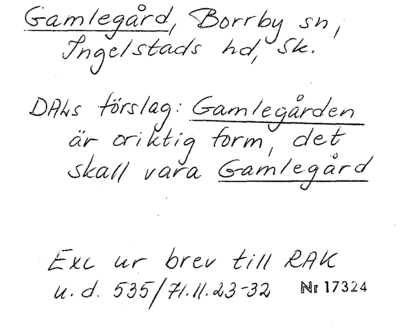 Gamlegård, Borrby sn,
Ingelstads hd, Sk.
DALs förslag: Gamlegården
är oriktig form, det
skall vara Gamlegård
Exc ur brev till RAK
u.d. 535/71.11.23-32 Nr 17324